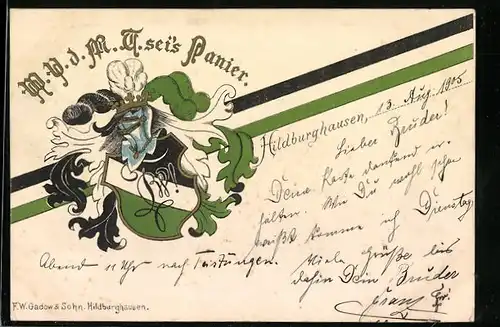 W. V. d. M. T. sei's Panier.
Hildburghausen, 13. Aug. 1905
Lieber Bruder!
Deine Karte dankend er-
halten. Wie Du wohl schon
weißt komme ich Dienstag
Abend 11 Uhr nach
Viele Grüße bis
dahin Dein Bruder
Franz
F.W. Gadow & Sohn. Hildburghausen.